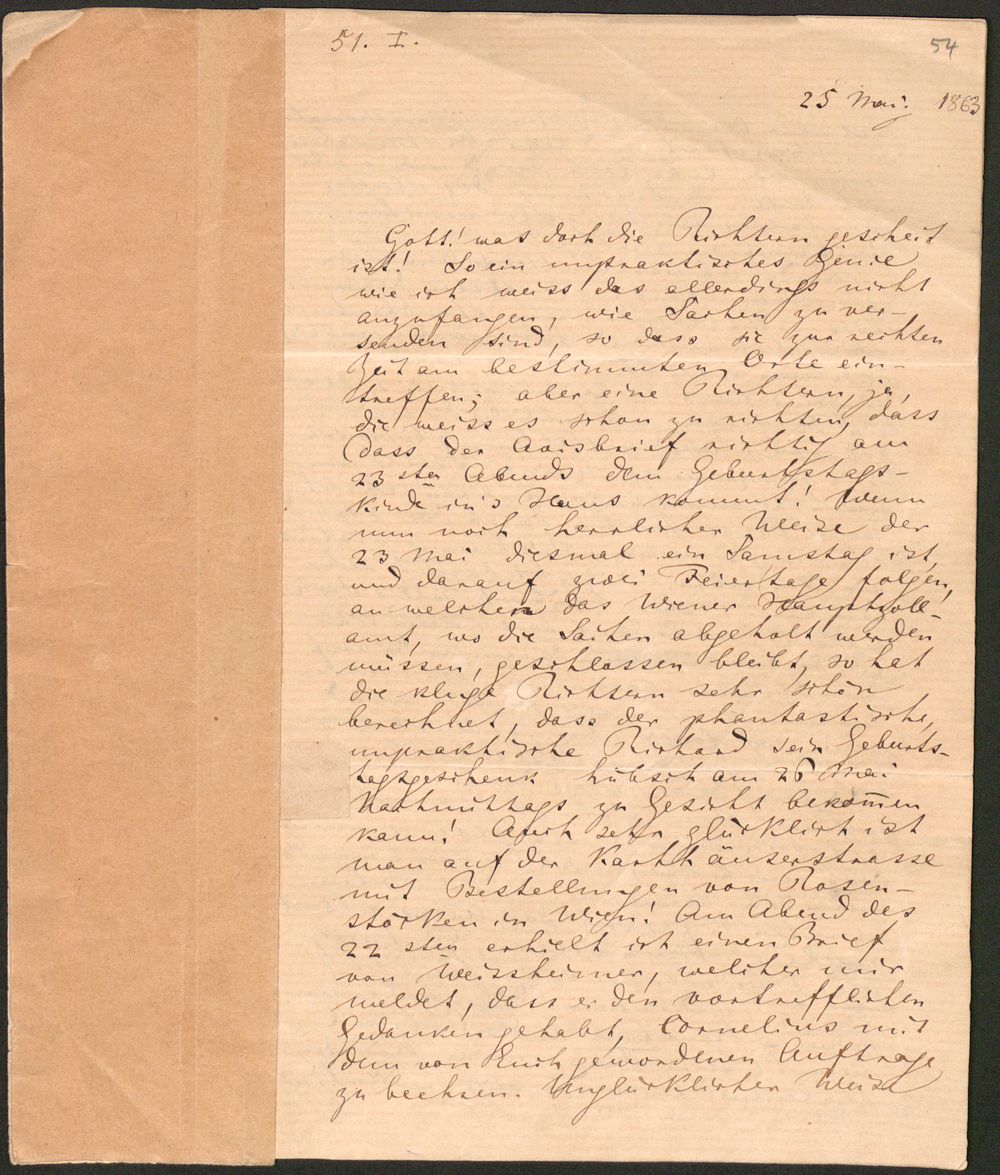 51. I.
54
25 Mai. 1863
Gott! was doch die Richtern gescheit
ist! So ein unpraktisches Genie
wie ich weiss das allerdings nicht
anzufangen, wie Sachen zu ver-
senden sind, so dass sie zur rechten
Zeit am bestimmten Orte ein-
treffen; aber eine Richtern, ja,
die weiss es schon zu richten, dass
dass der Avisbrief richtig am
23 sten Abends dem Geburtstags-
kinde in's Haus kommt! Wenn
nun noch herrlicher Weise der
23 Mai diesmal ein Samstag ist,
und darauf zwei Feiertage folgen,
an welchen das Wiener Hauptzoll-
amt, wo die Sachen abgeholt werden
müssen, geschlossen bleibt, so hat
die kluge Richtern sehr schön
berechnet, dass der phantastische,
unpraktische Richard sein Geburts-
tagsgeschenk hübsch am 26 Mai
Nachmittags zu Gesicht bekom̄en
kann! Auch sehr glücklich ist
man auf der Karthäuserstrasse
mit Bestellungen von Rosen-
stöcken in Wien! Am Abend des
22 sten erhielt ich einen Brief
von Weissheimer, welcher mir
meldet, dass er den vortrefflichen
Gedanken gehabt, Cornelius mit
dem von Euch gewordenen Auftrage
zu beehren. Unglücklicher Weise